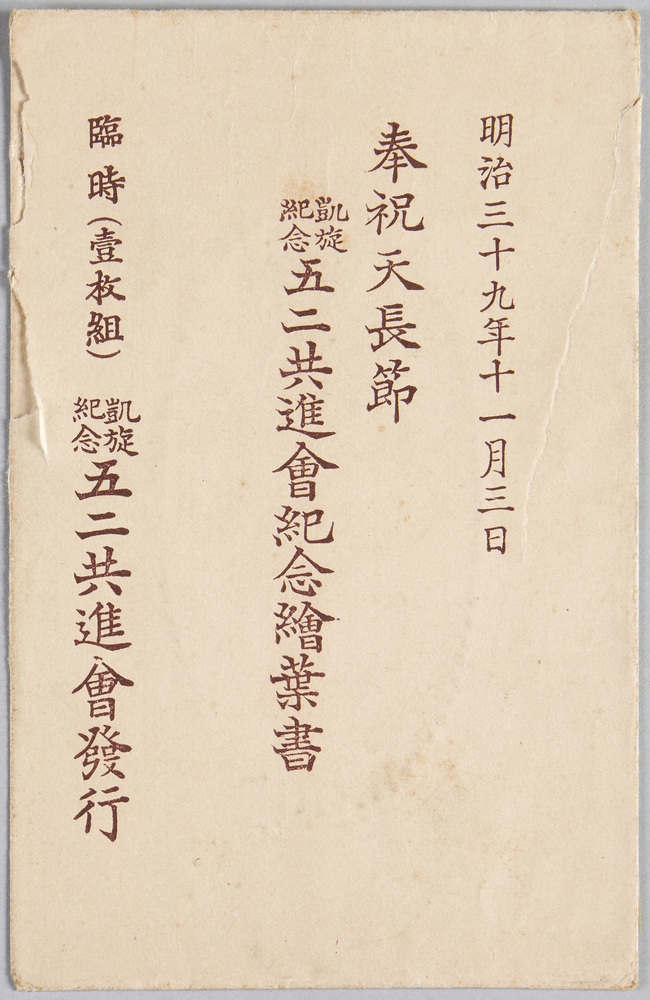 明治三十九年十一月三日
奉祝天長節
凱旋紀念五二共進會紀念繪葉書
臨時（壹枚組）凱旋紀念五二共進會發行